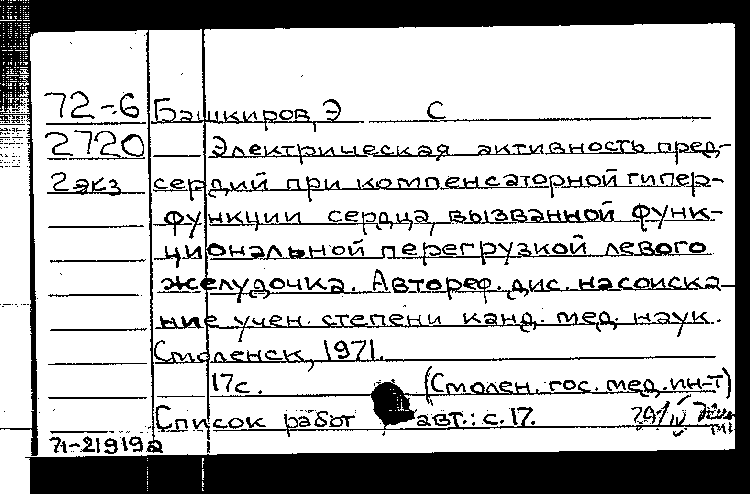 72-6 Башкиров, Э С
2720 Электрическая активность пред-
2 экз сердий при компенсаторной гипер-
функции сердца, вызванной функ-
циональной перегрузкой левого
желудочка. Автореф. дис. на соиска-
ние учен. степени канд. мед. наук.
Смоленск, 1971.
17с. (Смолен. гос. мед. ин-т)
Список работ авт.: с. 17.
71-21919а